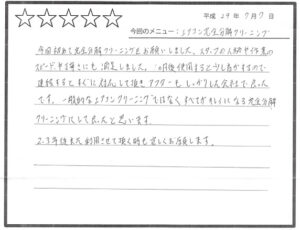 平成 29年 7月 7日
今回のメニュー：エアコン完全分解クリーニング
今回初めて完全分解クリーニングをお願いしました。スタッフの人柄や作業の
スピードや丁寧さにも満足しました。
連絡をするとすぐに対応して頂きアフターもしっかりした会社で良かった
です。一般的なエアコンクリーニングではなくすべてがキレイになる完全分解
クリーニングにして良かったと思います。
2、3年後また利用させて頂く時も宜しくお願いします。